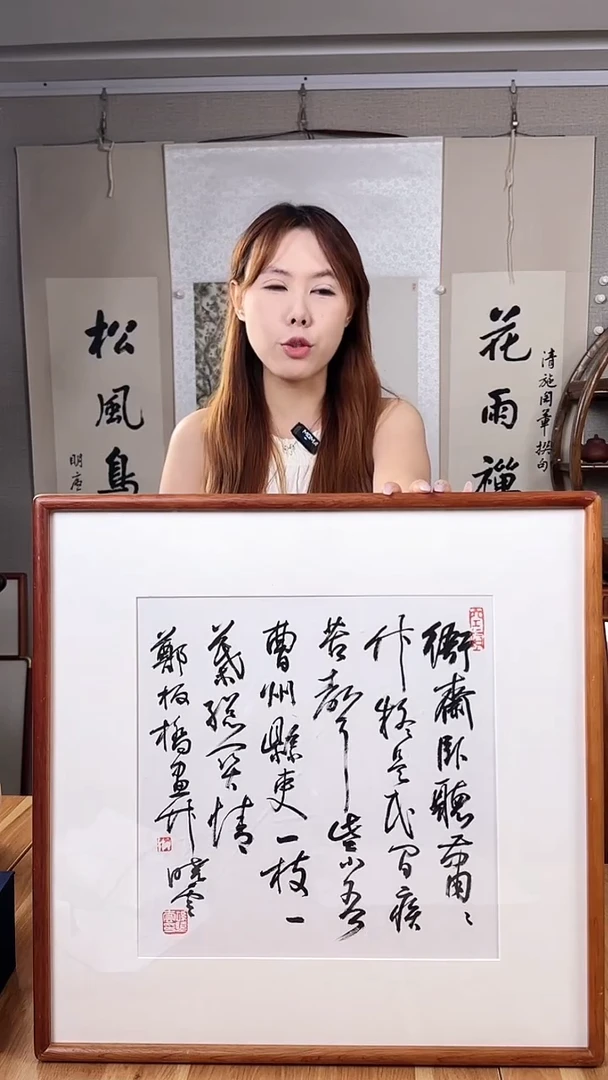 松風鳥
花雨禪
清施閏章撰句
衙齋臥聽蕭〻
竹疑是民間疾
苦聲些小吾
曹州縣吏一枝一
葉總關情
鄭板橋畫竹 曉雲